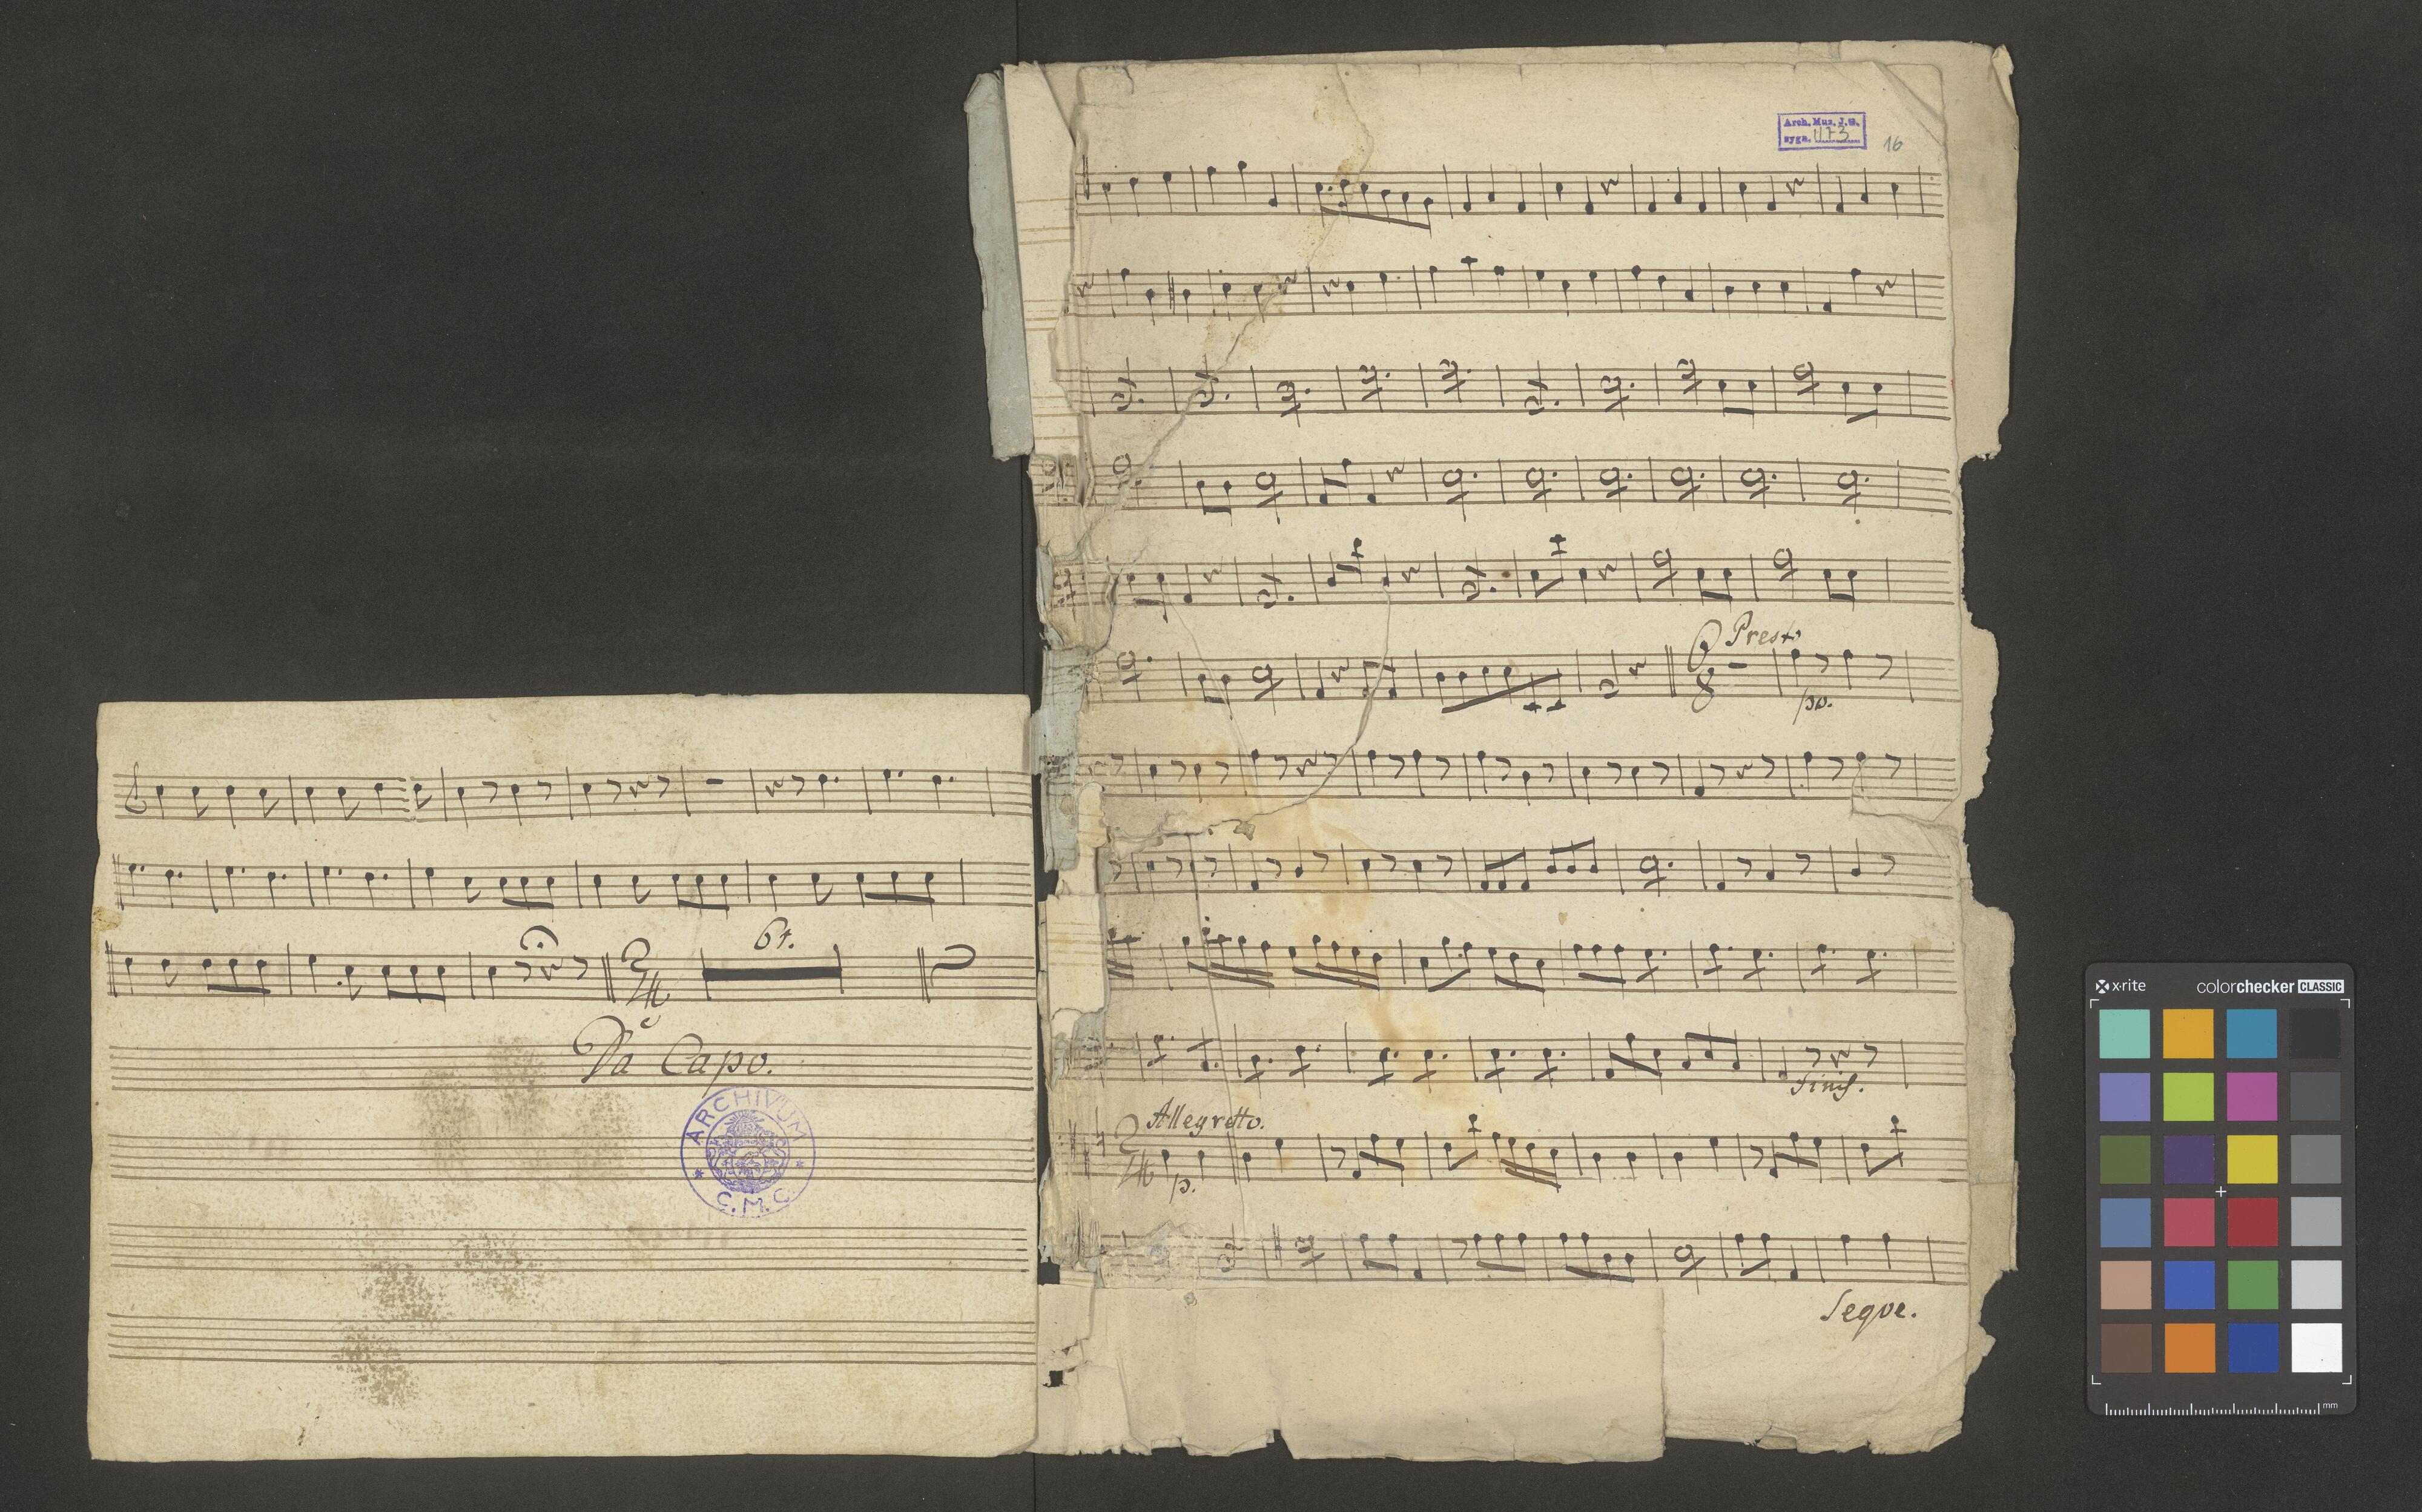 64.
2
4
Da Capo.
ARCHIVUM
C. M. C.
Arch. Muz. J.G.
sygn. II/73
16
Presto
6
8
po.
Finis.
Allegretto.
2
4
p.
Seque.
x-rite
colorchecker CLASSIC
mm